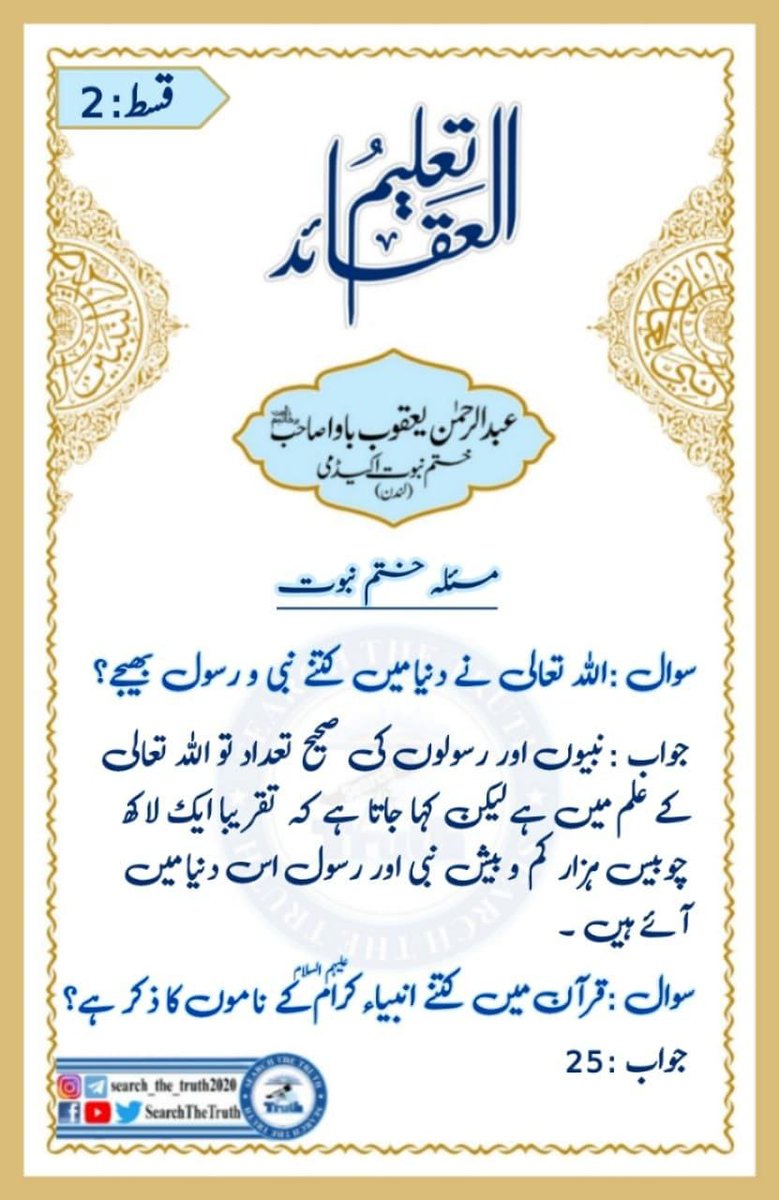 قسط:2
تعلیمُ
العقائد
عبدالرحمٰن یعقوب باوا صاحب
ختم نبوت اکیڈمی
(لندن)
مسئلہ ختم نبوت
سوال :اللہ تعالی نے دنیا میں کتنے نبی و رسول بھیجے؟
جواب :نبیوں اور رسولوں کی صحیح تعداد تو اللہ تعالی
کے علم میں ہے لیکن کہا جاتا ہے کہ تقریبا ایک لاکھ
چوبیس ہزار کم و بیش نبی اور رسول اس دنیا میں
آئے ہیں ۔
سوال :قرآن میں کتنے انبیاء کرام علیہم السلام کے ناموں کا ذکر ہے؟
جواب :25
search_the_truth2020
SearchTheTruth
SEARCH THE TRUTH
Truth